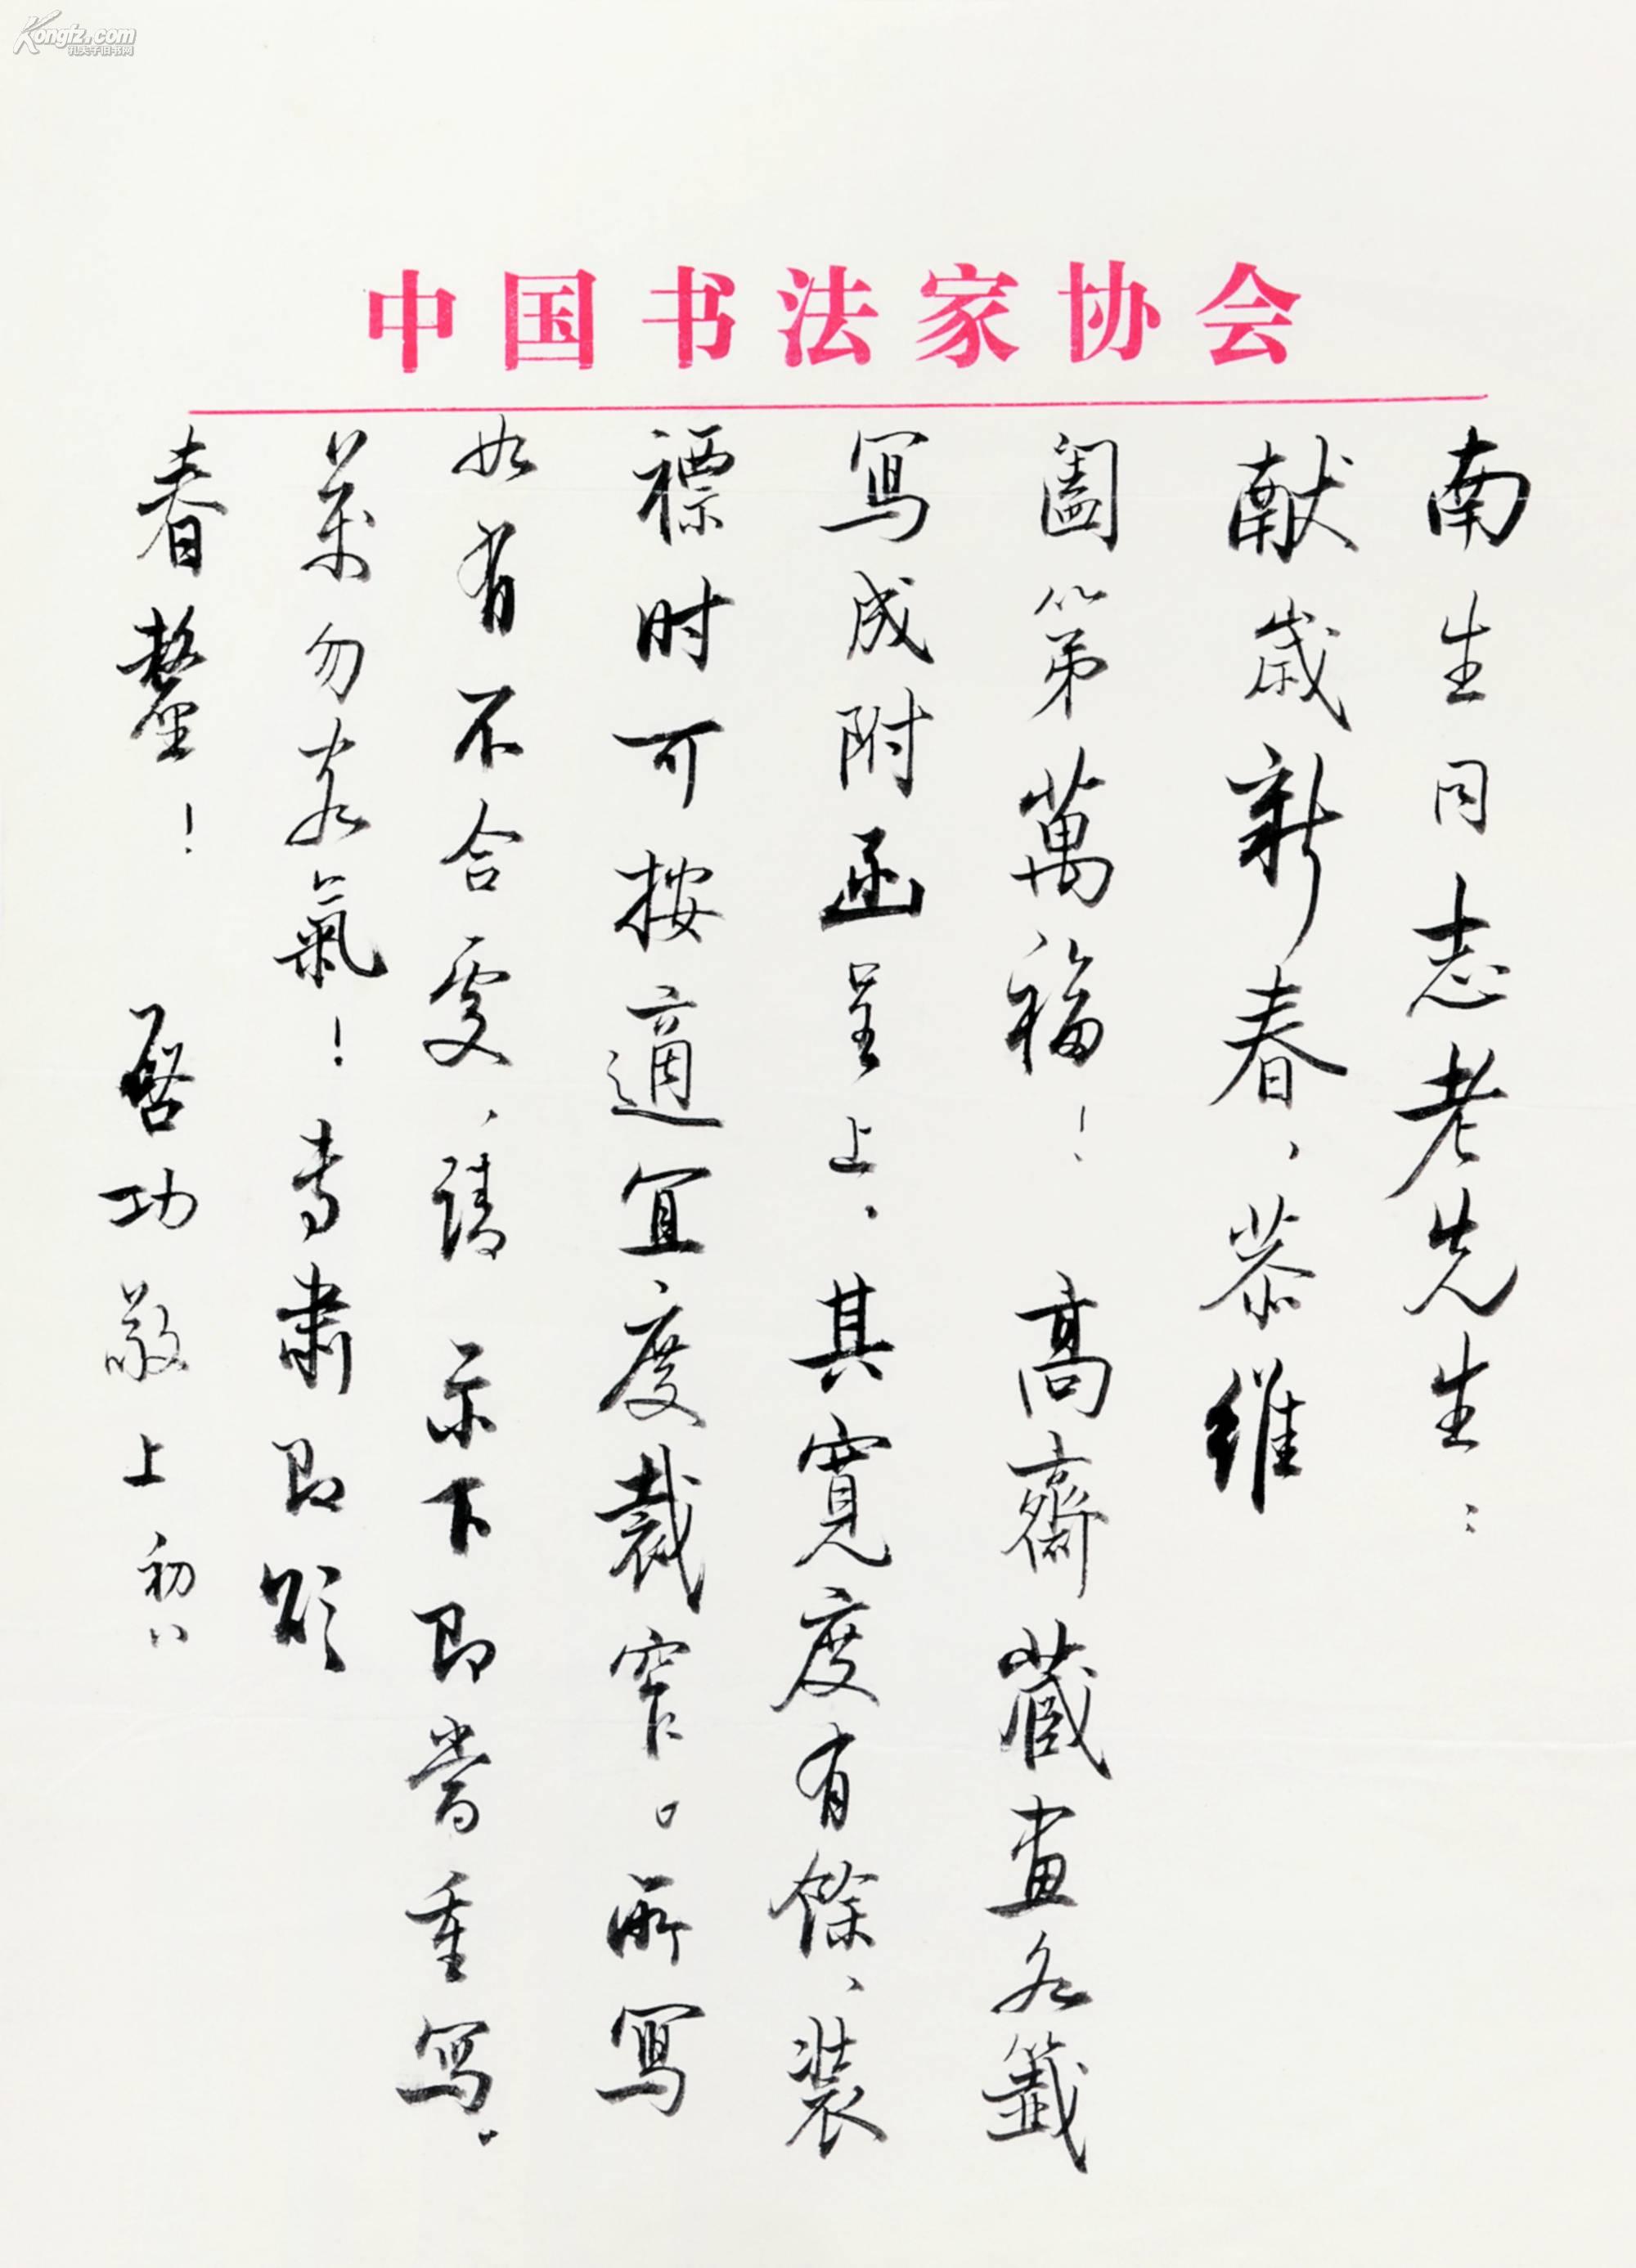 Kongfz.com
孔夫子旧书网
中国书法家协会
南生同志老先生：
献歲新春，恭維
阖第萬福！高齋藏畫各籤
寫成附函呈上。其寬度有餘，裝
褾时可按適宜度裁窄。所寫
如有不合處，请示下即當重寫。
萬勿客氣！专肅即頌
春釐！啓功敬上初八